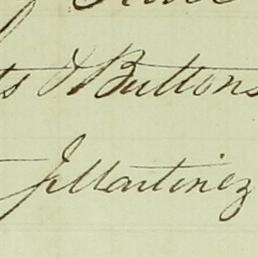 & Buttons
J Martinez